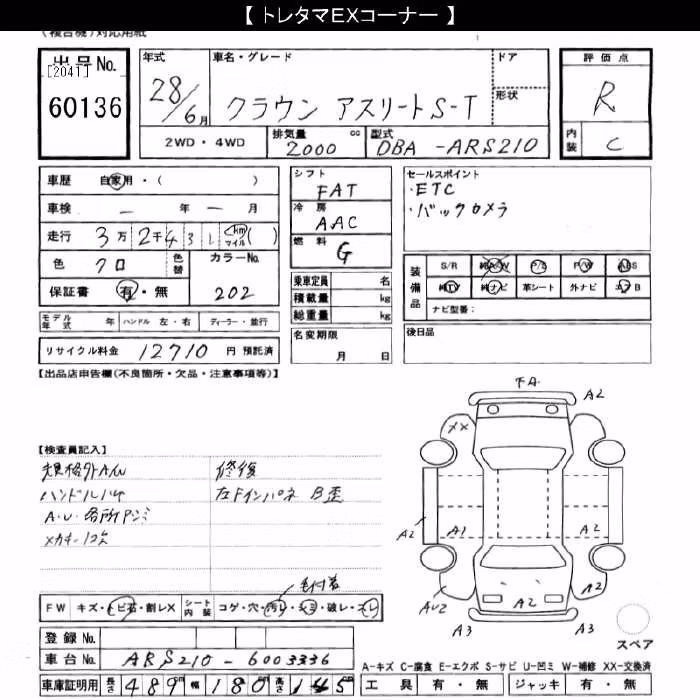 【 トレタマEXコーナー 】
(複合機)対応用紙
出品No.
[2041]
60136
年式
28/6月
車名・グレード
クラウン アスリートS-T
ドア
形状
評価点
R
内装
C
2WD・4WD
排気量
2000
cc
型式
DBA-ARS210
車歴 自家用・( )
車検 ー 年 ー 月
走行 3万2千431 km マイル ( )
色 クロ
色替
カラーNo.
202
保証書 有・無
シフト
FAT
冷房
AAC
燃料
G
セールスポイント
・ETC
・バックカメラ
乗車定員 名
積載量 kg
総重量 kg
装備品
S/R 純A/W P/S P/W ABS
純TV 純ナビ 革シート 外ナビ エアB
ナビ型番:
モデル年式 年 ハンドル 左・右 ディーラー・並行
リサイクル料金 12710 円 預託済
名変期限
月 日
後日品
【出品店申告欄(不良箇所・欠品・注意事項等)】
【検査員記入】
規格外AW
A・U・各所
修復
左Fインパネ B歪
FA
A2
XX
A2
A1
A2
AU2
A2
A2
A3
A3
スペア
毛付着
FW キズ・ヒビ石・割レX シート内装 コゲ・穴・汚レ・シミ・破レ・スレ
登録 No.
車台 No. ARS210-6003336
車庫証明用 長さ 489cm 幅 180cm 高さ 145cm
A-キズ C-腐食 E-エクボ S-サビ U-凹ミ W-補修 XX-交換済
工具 有・無 ジャッキ 有・無